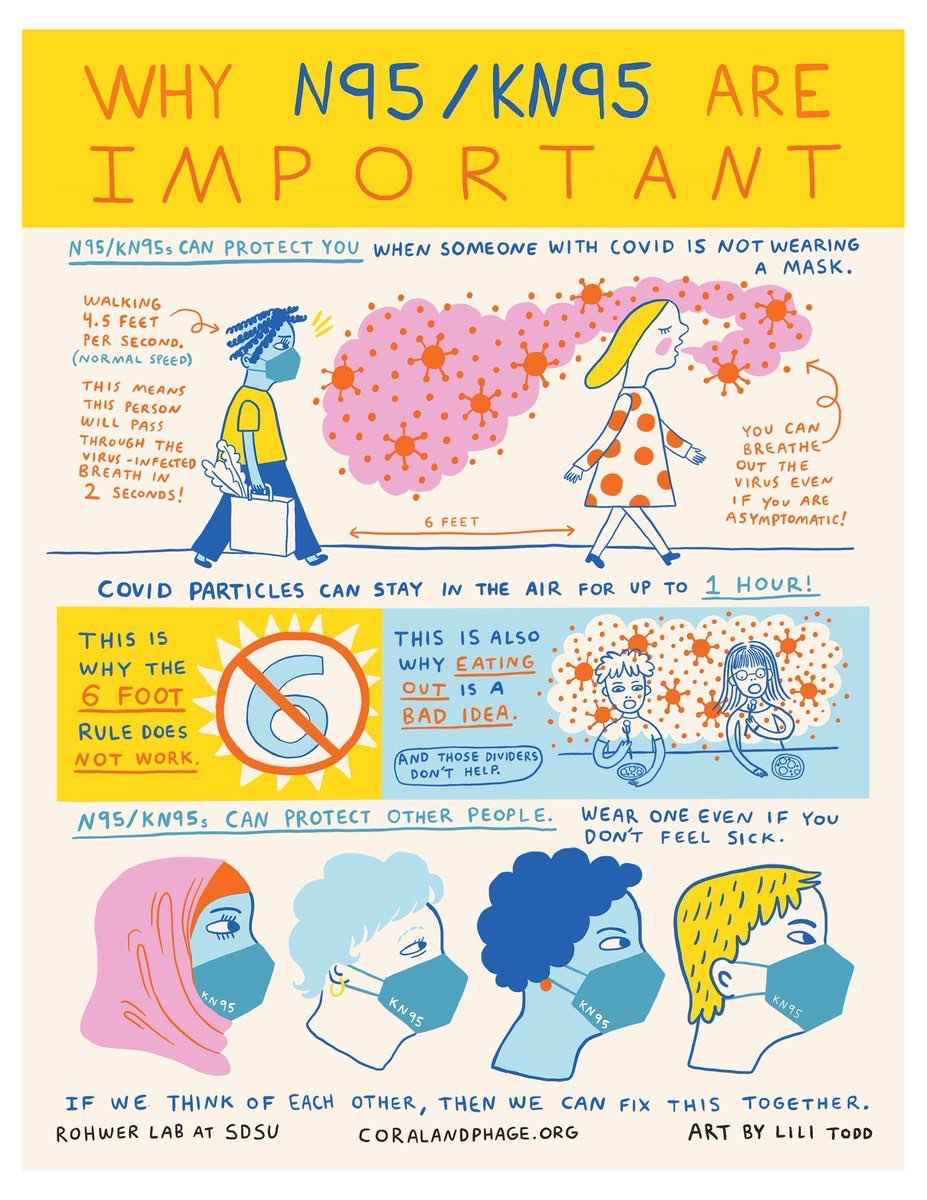 WHY N95/KN95 ARE
IMPORTANT
N95/KN95s CAN PROTECT YOU WHEN SOMEONE WITH COVID IS NOT WEARING
A MASK.
WALKING
4.5 FEET
PER SECOND.
(NORMAL SPEED)
THIS MEANS
THIS PERSON
WILL PASS
THROUGH THE
VIRUS-INFECTED
BREATH IN
2 SECONDS!
6 FEET
YOU CAN
BREATHE
OUT THE
VIRUS EVEN
IF YOU ARE
ASYMPTOMATIC!
COVID PARTICLES CAN STAY IN THE AIR FOR UP TO 1 HOUR!
THIS IS
WHY THE
6 FOOT
RULE DOES
NOT WORK.
6
THIS IS ALSO
WHY EATING
OUT IS A
BAD IDEA.
AND THOSE DIVIDERS
DON'T HELP.
N95/KN95s CAN PROTECT OTHER PEOPLE. WEAR ONE EVEN IF YOU
DON'T FEEL SICK.
KN95
KN95
KN95
KN95
IF WE THINK OF EACH OTHER, THEN WE CAN FIX THIS TOGETHER.
ROHWER LAB AT SDSU
CORALANDPHAGE.ORG
ART BY LILI TODD